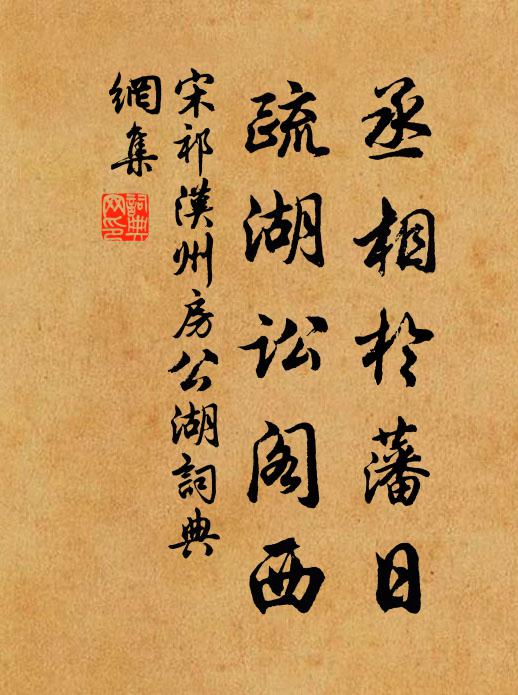 丞相於藩日
疏湖訟阁西
宋祁漢州房公湖詞典
網集
詞典
网印